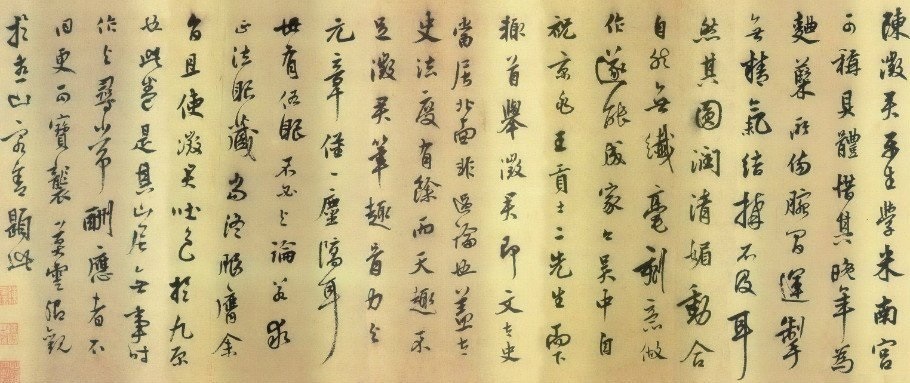 陳激君平生學米南宮
可稱具體惜其晚年為
麯蘖所傷腕間運掣
無精氣結構不及耳
然其圓潤清媚動合
自然無纖毫刻意做
作遂能成家云吳中自
祝京兆王貢士二先生而下
輒首舉激君即文太史
當居北面非過論也蓋太
史法度有餘而天趣不
足激君筆趣首力与
元章僅一塵隔耳
世有伍眼不必与論若求
正法眼藏當須服膺余
言且使激君吐色於九原
也此卷是其山居無事時
作与尋常酬應者不
同更可寶襲 莫雲卿觀
於
山
舍題此